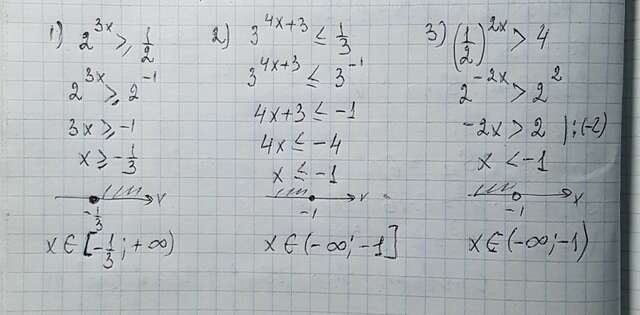 1) 2^{3x} ≥ \frac{1}{2}
2^{3x} ≥ 2^{-1}
3x ≥ -1
x ≥ -\frac{1}{3}
-\frac{1}{3} x
x ∈ [-\frac{1}{3}; +∞)
2) 3^{4x+3} ≤ \frac{1}{3}
3^{4x+3} ≤ 3^{-1}
4x+3 ≤ -1
4x ≤ -4
x ≤ -1
-1 x
x ∈ (-∞; -1]
3) (\frac{1}{2})^{2x} > 4
2^{-2x} > 2^{2}
-2x > 2 |:(-2)
x < -1
-1 x
x ∈ (-∞; -1)